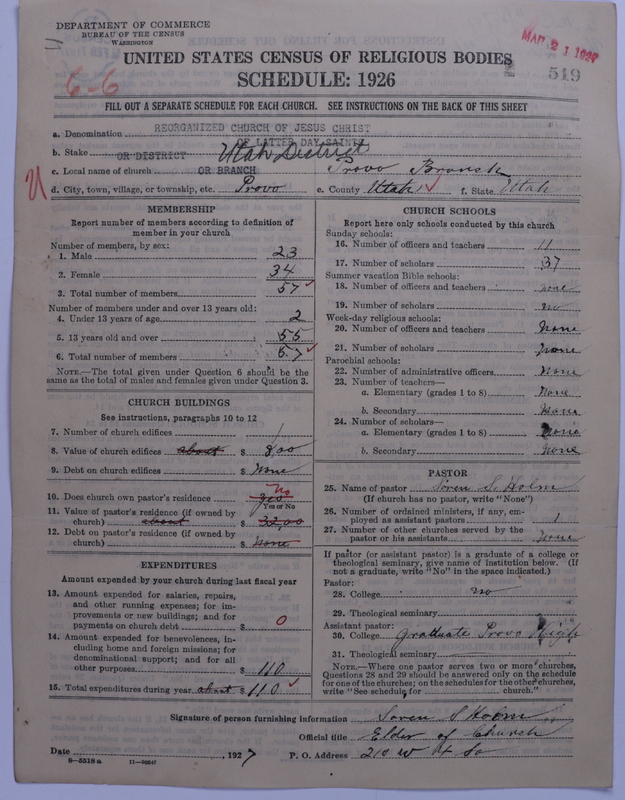 DEPARTMENT OF COMMERCE
BUREAU OF THE CENSUS
WASHINGTON
UNITED STATES CENSUS OF RELIGIOUS BODIES
SCHEDULE: 1926
MAR 21 1927
519
6-6
FILL OUT A SEPARATE SCHEDULE FOR EACH CHURCH. SEE INSTRUCTIONS ON THE BACK OF THIS SHEET
a. Denomination REORGANIZED CHURCH OF JESUS CHRIST
OF LATTER DAY SAINTS
b. Stake OR DISTRICT Utah District
c. Local name of church OR BRANCH Provo Branch
d. City, town, village, or township, etc. Provo e. County Utah f. State Utah
MEMBERSHIP
Report number of members according to definition of member in your church
Number of members, by sex:
1. Male 23
2. Female 34
3. Total number of members 57
Number of members under and over 13 years old:
4. Under 13 years of age 2
5. 13 years old and over 55
6. Total number of members 57
NOTE.—The total given under Question 6 should be the same as the total of males and females given under Question 3.
CHURCH BUILDINGS
See instructions, paragraphs 10 to 12
7. Number of church edifices 1
8. Value of church edifices about $ 800
9. Debt on church edifices $ None
10. Does church own pastor's residence yes No
Yes or No
11. Value of pastor's residence (if owned by church) about $
12. Debt on pastor's residence (if owned by church) $ None
EXPENDITURES
Amount expended by your church during last fiscal year
13. Amount expended for salaries, repairs, and other running expenses; for improvements or new buildings; and for payments on church debt $ 0
14. Amount expended for benevolences, including home and foreign missions; for denominational support; and for all other purposes $ 110
15. Total expenditures during year about $ 110
CHURCH SCHOOLS
Report here only schools conducted by this church
Sunday schools:
16. Number of officers and teachers 11
17. Number of scholars 37
Summer vacation Bible schools:
18. Number of officers and teachers none
19. Number of scholars no
Week-day religious schools:
20. Number of officers and teachers None
21. Number of scholars None
Parochial schools:
22. Number of administrative officers None
23. Number of teachers—
a. Elementary (grades 1 to 8) None
b. Secondary None
24. Number of scholars—
a. Elementary (grades 1 to 8) None
b. Secondary None
PASTOR
25. Name of pastor Soren S. Holm
(If church has no pastor, write "None")
26. Number of ordained ministers, if any, employed as assistant pastors 1
27. Number of other churches served by the pastor or his assistants None
If pastor (or assistant pastor) is a graduate of a college or theological seminary, give name of institution below. (If not a graduate, write "No" in the space indicated.)
Pastor:
28. College no
29. Theological seminary
Assistant pastor:
30. College Graduate Provo High
31. Theological seminary
NOTE.—Where one pastor serves two or more churches, Questions 28 and 29 should be answered only on the schedule for one of the churches; on the schedules for the other churches, write "See schedule for church."
Signature of person furnishing information Soren S Holm
Official title Elder of Church
Date , 1927 P. O. Address 210 W 4 So
8—5518 a 11—